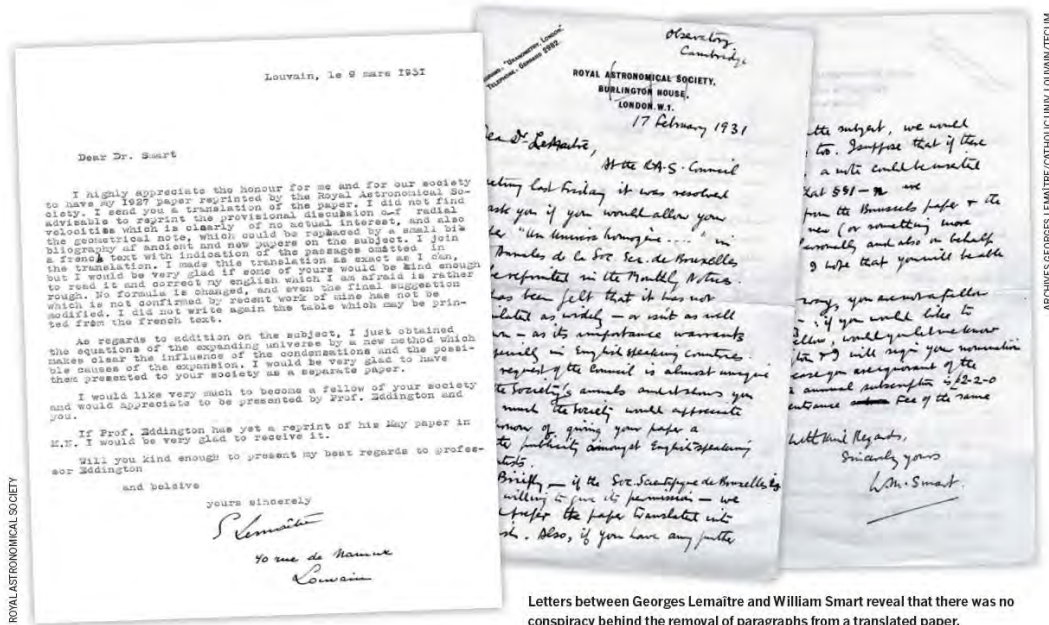 Louvain, le 9 mars 1931
Dear Dr. Smart
I highly appreciate the honour for me and for our society
to have my 1927 paper reprinted by the Royal Astronomical So-
ciety. I send you a translation of the paper. I did not find
advisable to reprint the provisional discussion of radial
velocities which is clearly of no actual interest, and also
the geometrical note, which could be replaced by a small bi
bliography of ancient and new papers on the subject. I join
a french text with indication of the passages omitted in
the translation. I made this translation as exact as I can,
but I would be very glad if some of yours would be kind enough
to read it and correct my english which I am afraid is rather
rough. No formula is changed, and even the final suggestion
which is not confirmed by recent work of mine has not be
modified. I did not write again the table which may be prin-
ted from the french text.
As regards to addition on the subject, I just obtained
the equations of the expanding universe by a new method which
makes clear the influence of the condensations and the possi-
ble causes of the expansion. I would be very glad to have
them presented to your society as a separate paper.
I would like very much to become a fellow of your society
and would appreciate to be presented by Prof. Eddington and
you.
If Prof. Eddington has yet a reprint of his May paper in
M.N. I would be very glad to receive it.
Will you kind enough to present my best regards to profes-
sor Eddington
and beleive
yours sincerely
G Lemaître
40 rue de Namur
Louvain
Observatory
Cambridge
LONDON.
TELEPHONE, GERRARD 2982.
ROYAL ASTRONOMICAL SOCIETY,
BURLINGTON HOUSE,
LONDON. W.1.
17 February 1931
Dr Lemaître,
At the R.A.S. Council
last Friday it was resolved
ask you if you would allow your
"Un Univers homogène...." in
Annales de la Soc. Sci. de Bruxelles
reprinted in the Monthly Notices.
has been felt that it has not
as widely — or isn't as well
— as its importance warrants
in English speaking countries.
request of the Council is almost unique
the Society's annals and it shows you
much the Society would appreciate
of giving your paper a
publicity amongst English speaking
Briefly — if the Soc. Scientifique de Bruxelles is
willing to give its permission — we
prefer the paper translated into
Also, if you have any further
the subject, we would
too. I suppose that if there
a note could be inserted
that §§1—n are
from the Brussels paper & the
new (or something more
personally and also on behalf
I hope that you will be able
you are not a fellow
if you would like to
would you let me know
& I will sign your nomination
case you are ignorant of the
annual subscription is £2-2-0
entrance fee of the same
With kind Regards,
Sincerely yours
W.M. Smart.
Letters between Georges Lemaître and William Smart reveal that there was no
conspiracy behind the removal of paragraphs from a translated paper.
ROYAL ASTRONOMICAL SOCIETY
ARCHIVES GEORGES LEMAÎTRE/CATHOLIC UNIV. LOUVAIN/TECLIM